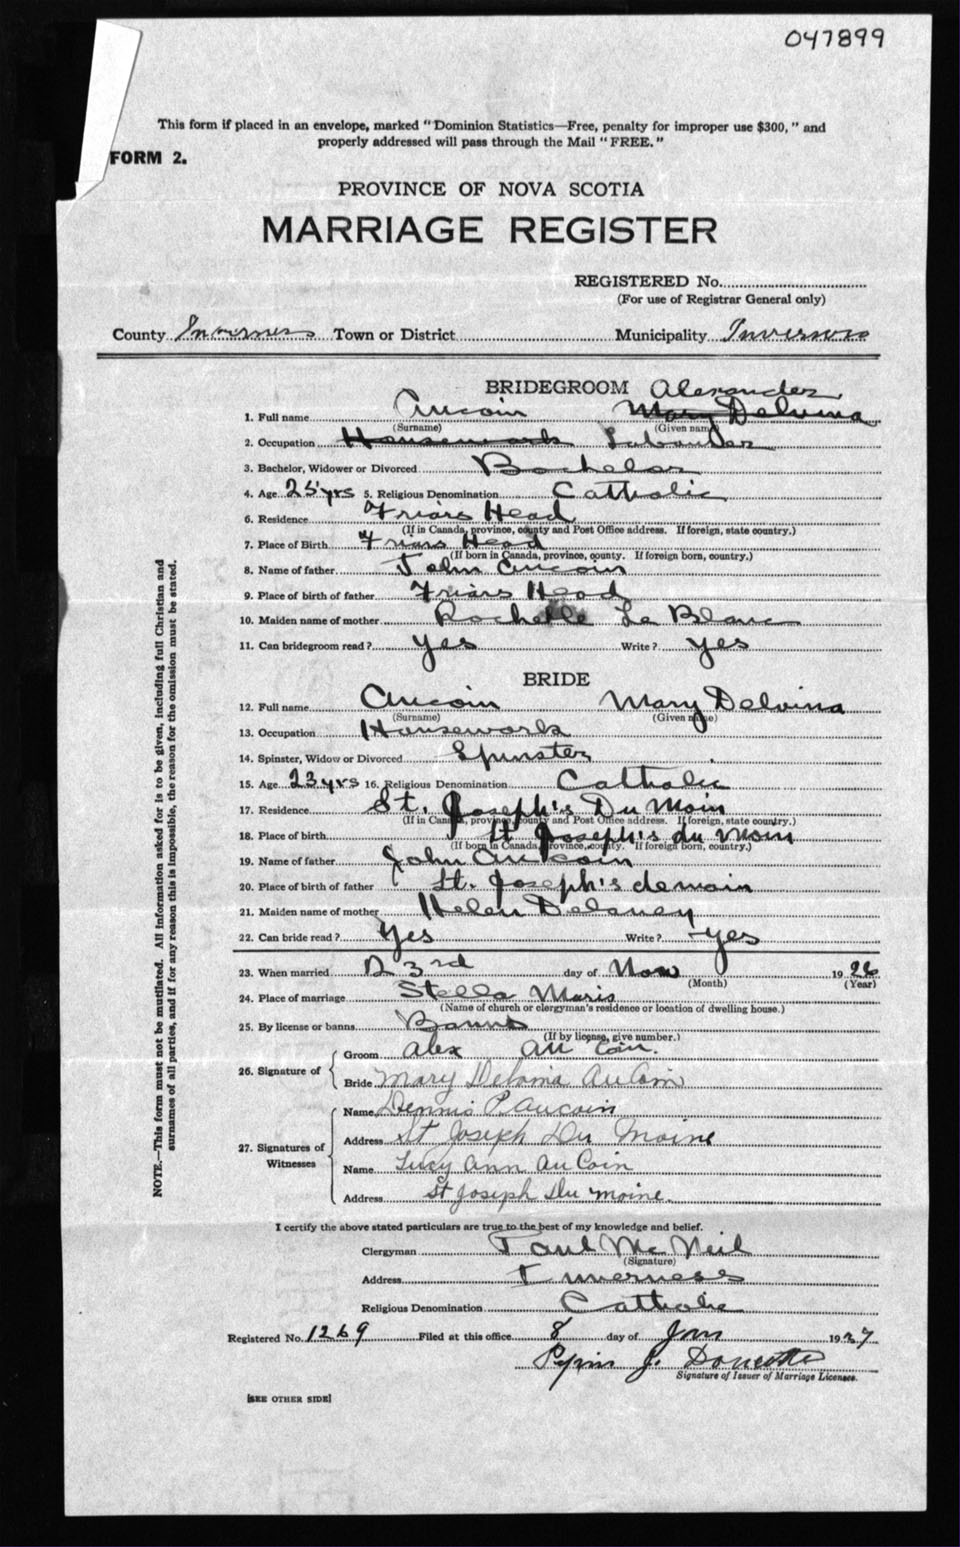 047899
This form if placed in an envelope, marked "Dominion Statistics—Free, penalty for improper use $300," and
properly addressed will pass through the Mail "FREE."
FORM 2.
PROVINCE OF NOVA SCOTIA
MARRIAGE REGISTER
REGISTERED No.
(For use of Registrar General only)
County Inverness Town or District Municipality Inverness
BRIDEGROOM Alexander
1. Full name Aucoin Mary Delvina
(Surname) (Given name)
2. Occupation Housework Labourer
3. Bachelor, Widower or Divorced Bachelor
4. Age 25 yrs 5. Religious Denomination Catholic
6. Residence Friars Head
(If in Canada, province, county and Post Office address. If foreign, state country.)
7. Place of Birth Friars Head
(If born in Canada, province, county. If foreign born, country.)
8. Name of father John Aucoin
9. Place of birth of father Friars Head
10. Maiden name of mother Rachelle Le Blanc
11. Can bridegroom read? yes Write? yes
BRIDE
12. Full name Aucoin Mary Delvina
(Surname) (Given name)
13. Occupation Housework
14. Spinster, Widow or Divorced Spinster
15. Age 23 yrs 16. Religious Denomination Catholic
17. Residence St. Joseph's Du Moin
(If in Canada, province, county and Post Office address. If foreign, state country.)
18. Place of birth St Joseph's du Moin
(If born in Canada, province, county. If foreign born, country.)
19. Name of father John Aucoin
20. Place of birth of father St. Joseph's demain
21. Maiden name of mother Helen Delaney
22. Can bride read? Yes Write? yes
23. When married 23rd day of Nov 1926
(Month) (Year)
24. Place of marriage Stella Maris
(Name of church or clergyman's residence or location of dwelling house.)
25. By license or banns Banns
(If by license, give number.)
26. Signature of Groom Alex Au Coin.
Bride Mary Delvina AuCoin
27. Signatures of Witnesses Name Dennis P. Aucoin
Address St Joseph Du Moine
Name Lucy Ann AuCoin
Address St Joseph Du moine.
I certify the above stated particulars are true to the best of my knowledge and belief.
Clergyman Paul McNeil
(Signature)
Address Inverness
Religious Denomination Catholic
Registered No. 1269 Filed at this office 8 day of Jan 1927
J. Doucette
Signature of Issuer of Marriage Licenses.
[SEE OTHER SIDE]
NOTE.—This form must not be mutilated. All information asked for is to be given, including full Christian and
surnames of all parties, and if for any reason this is impossible, the reason for the omission must be stated.